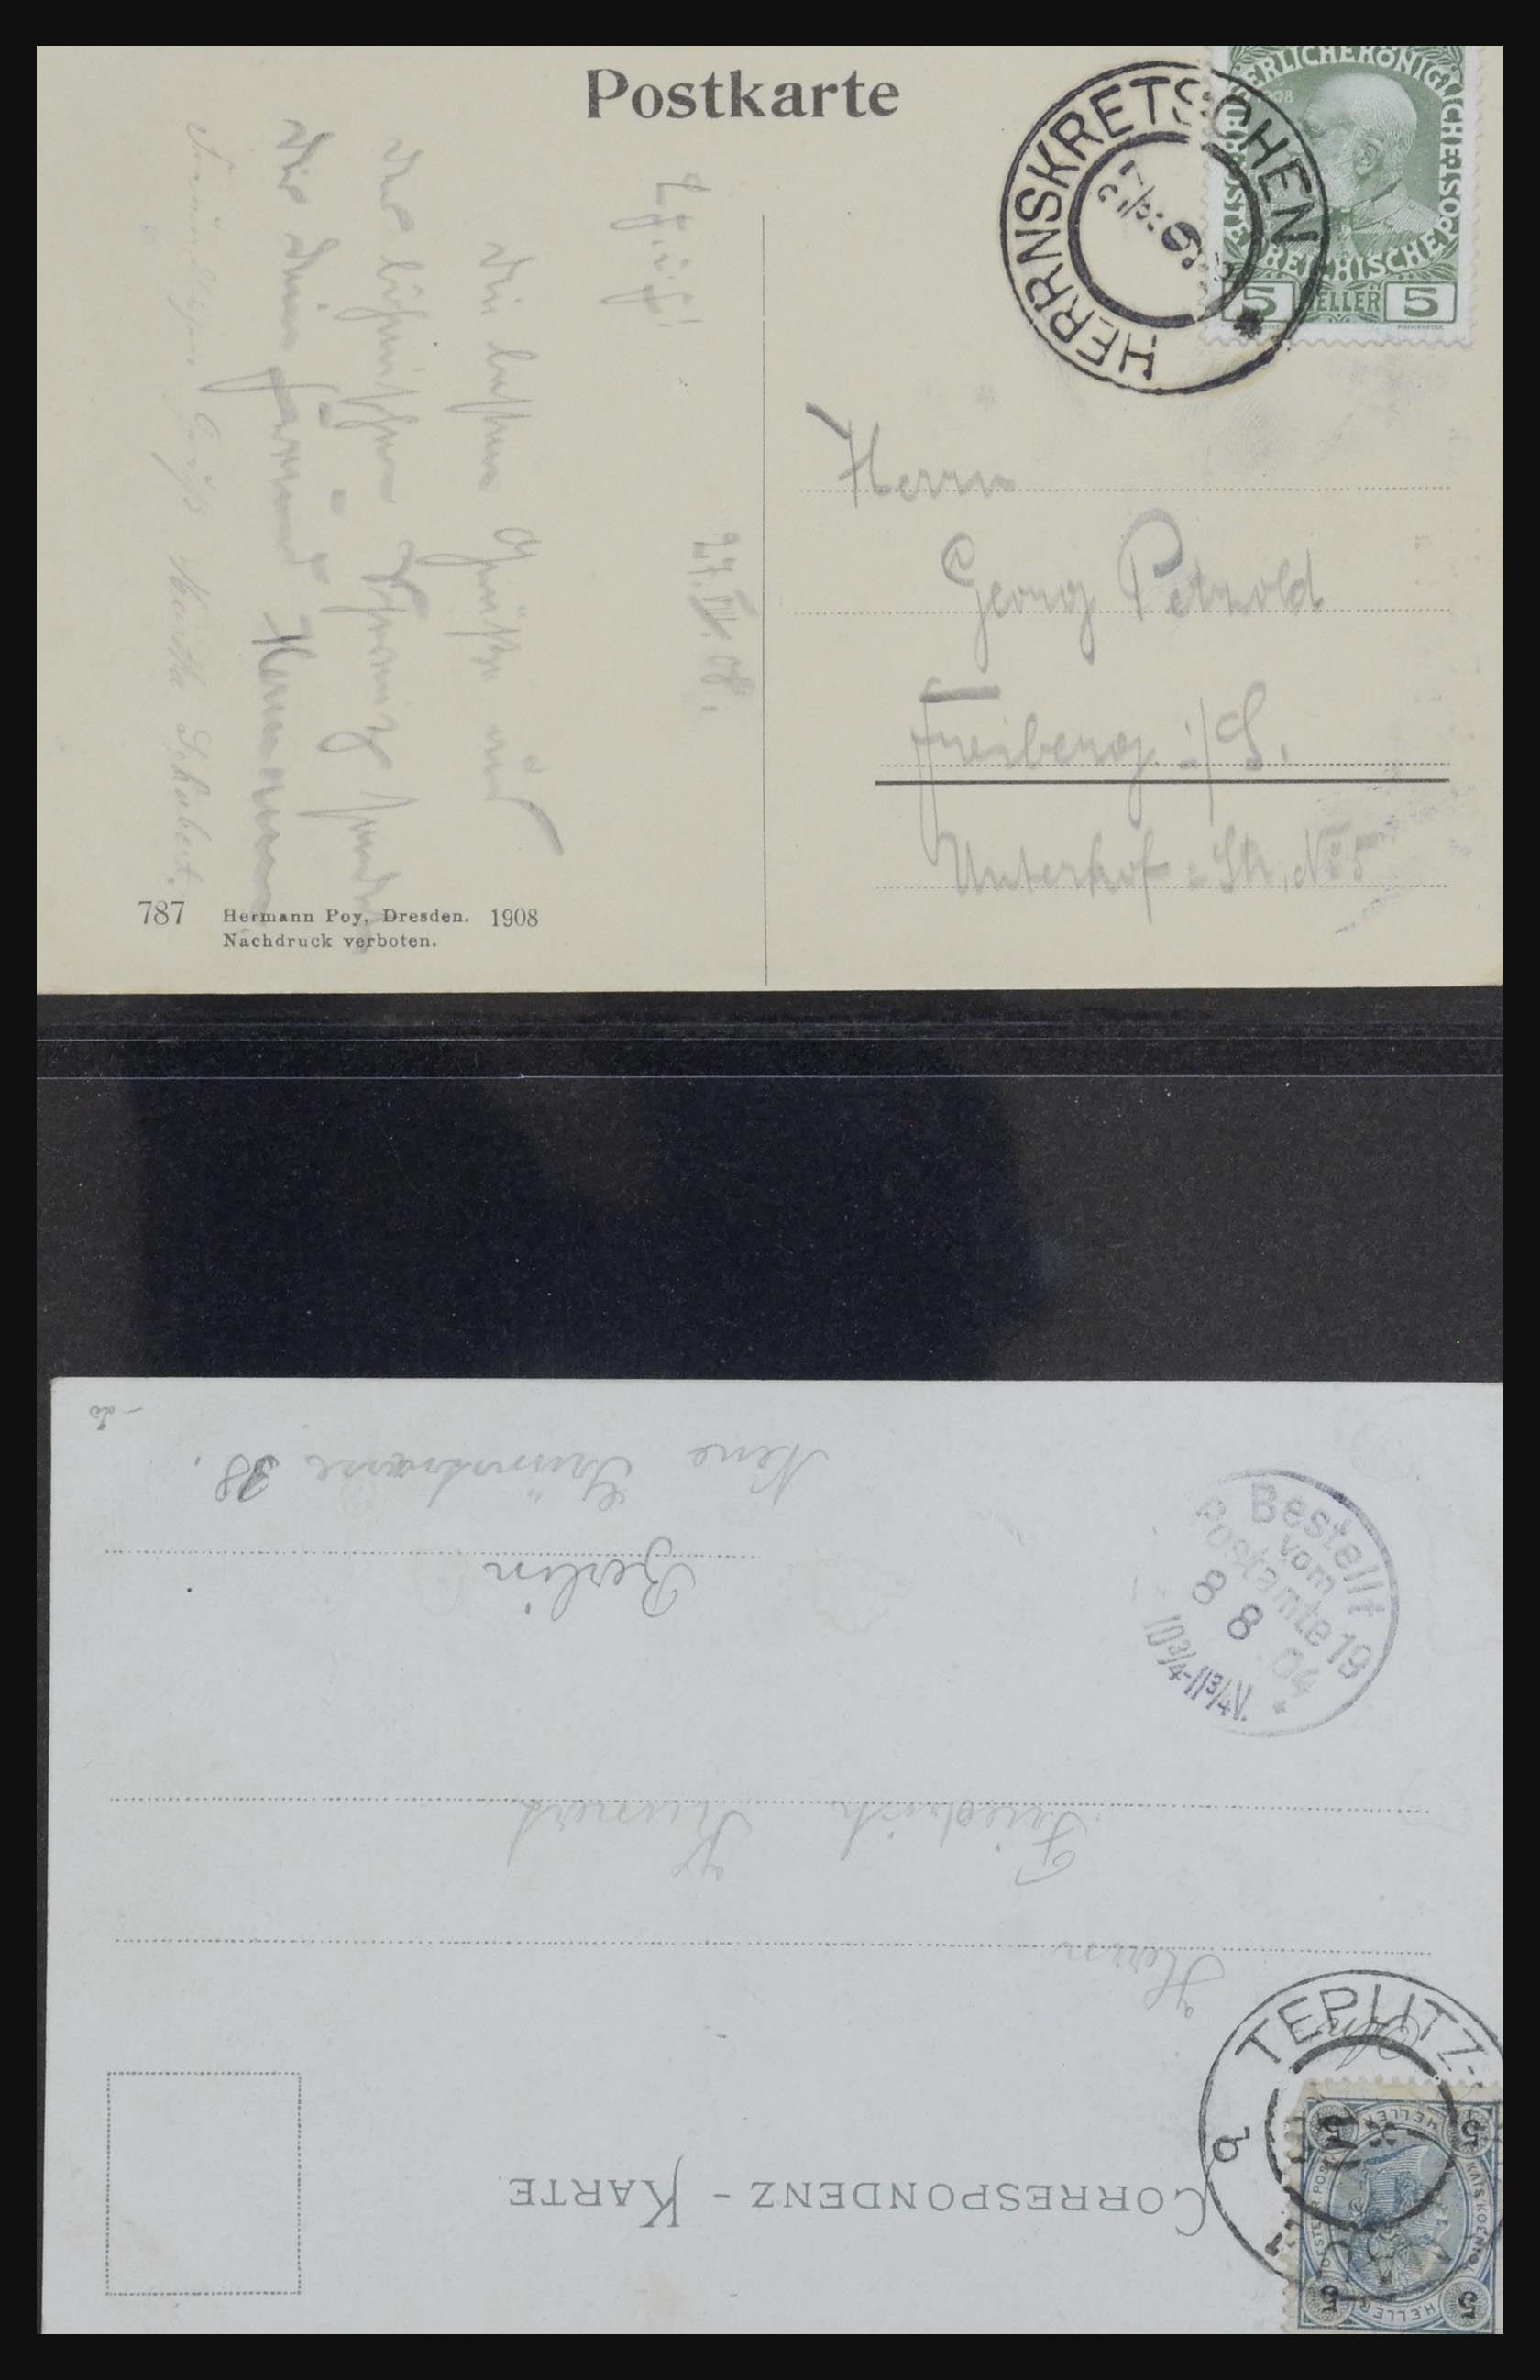 Postkarte
HERRNSKRETSCHEN
KAISERLICHE KÖNIGLICHE ÖSTERREICHISCHE POST
5 HELLER 5
Z. Z. i. H.
27. VII. 08.
Die besten Grüße aus
der böhmischen Schweiz sendet
Dir Dein Freund Hermann
Martha Schubert.
Herrn
Georg Petzold
Freiberg i/S.
Unterhof-Str. No 5
787 Hermann Poy, Dresden. 1908
Nachdruck verboten.
CORRESPONDENZ-KARTE
TEPLITZ-
5 HELLER 5
5 HELLER 5
Herrn
Friedrich
Berlin
Neue Grünstrasse 38.
Bestellt
vom
Postamte 19
8 8 04
10¾-11¾V.